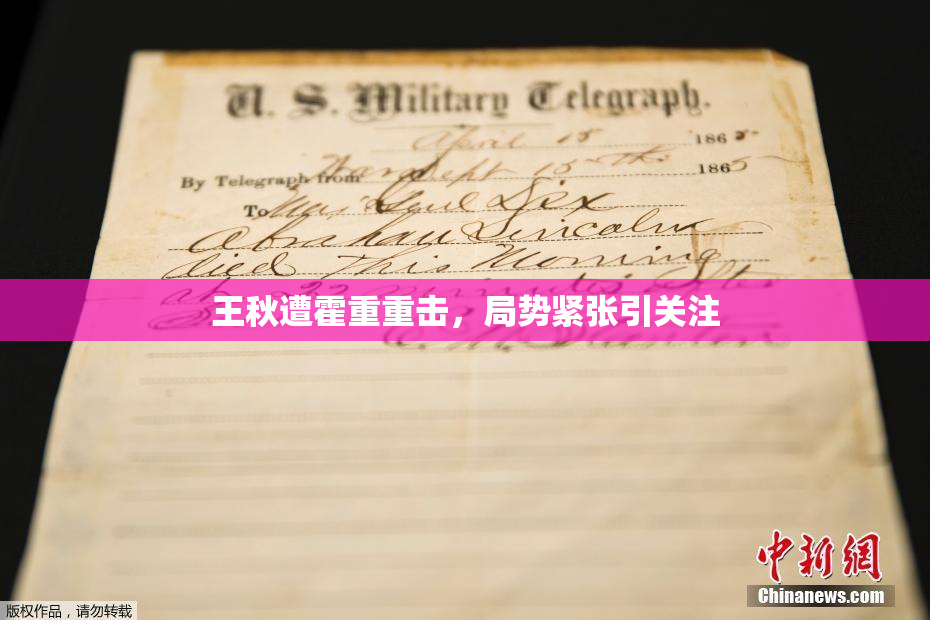 U. S. Military Telegraph.
April 15 1865
By Telegraph from War Dept 15th 1865
To Maj Genl Dix
Abraham Lincoln
died This Morning
at 22 minutes after
王秋遭霍重重击，局势紧张引关注
中新網
Chinanews.com
版权作品，请勿转载